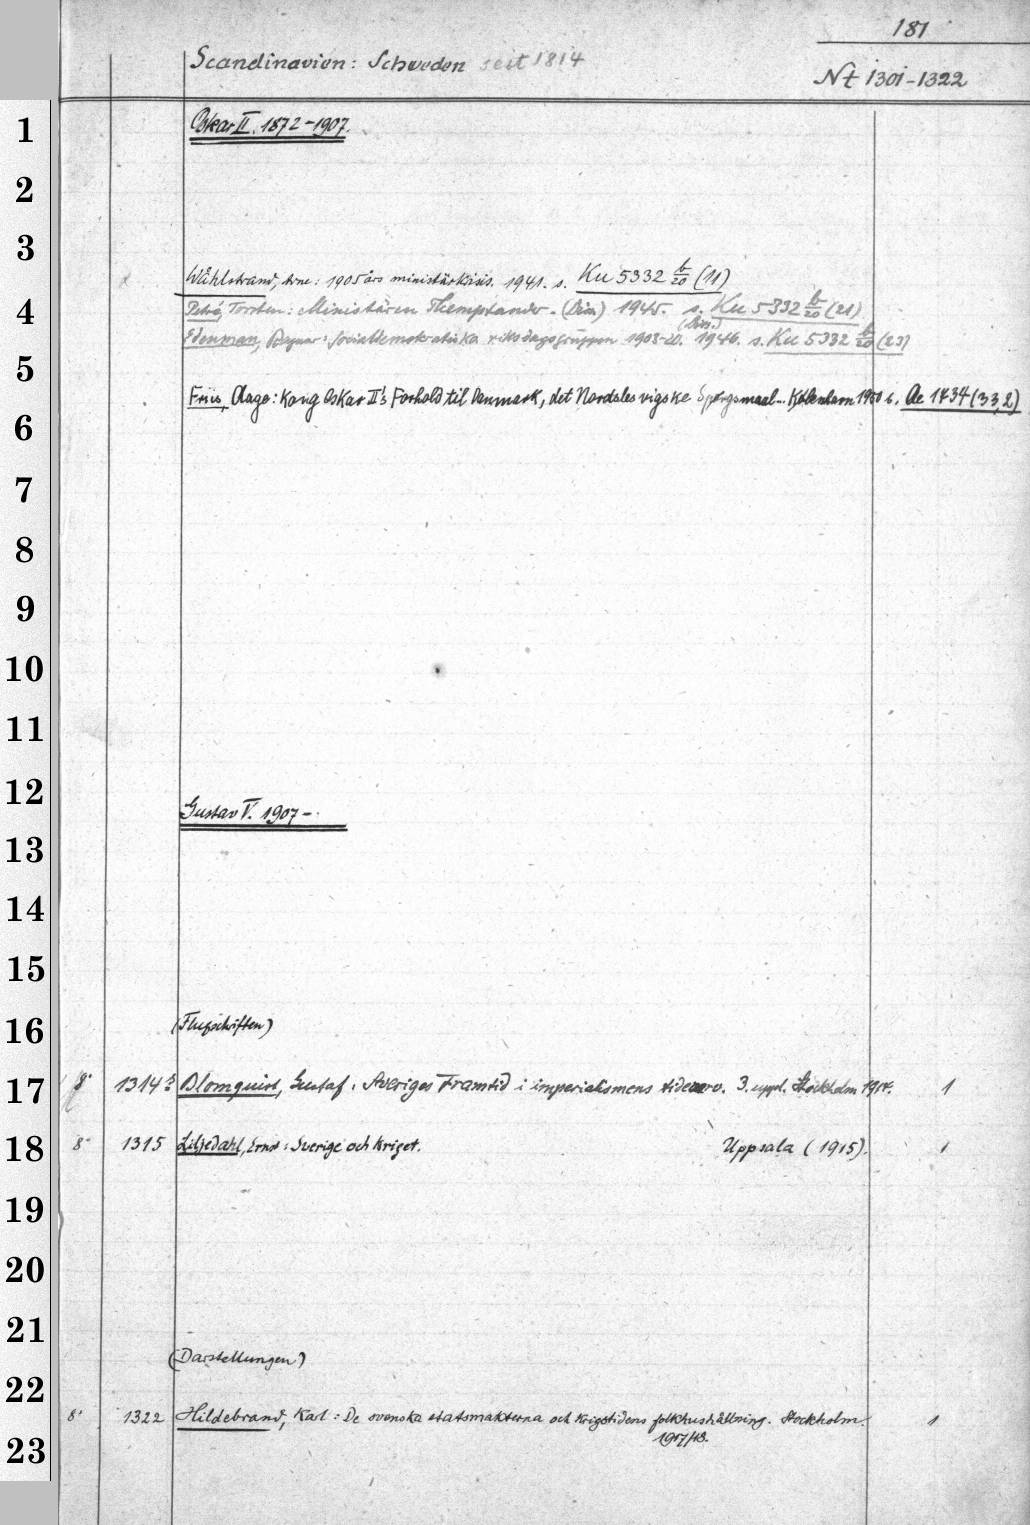 181
Scandinavien: Schweden seit 1814
Nt 1301-1322
Oskar II. 1872-1907.
Wåhlstrand, Arne: 1905 års ministärkrisis. 1941. s. Ku 5332 b/20 (11)
Petré, Torsten: Ministären Themptander. (Diss.) 1945. s. Ku 5332 b/20 (21)
Edenman, Ragnar: Socialdemokratiska riksdagsgruppen 1903-20. (Diss.) 1946. s. Ku 5332 b/20 (23)
Friis, Aage: Kong Oskar II's Forhold til Danmark, det Nordslesvigske Spörgsmaal... København 1950 s. Ae 1734 (33,2)
Gustav V. 1907-
(Flugschriften)
8° 1314 Blomquist, Gustaf: Sveriges Framtid i imperialismens tidevarv. 3. uppl. Stockholm 1917. 1
8° 1315 Liljedahl, Ernst: Sverige och kriget. Uppsala (1915). 1
(Darstellungen)
8° 1322 Hildebrand, Karl: De svenska statsmakterna och krigstidens folkhushållning. Stockholm. 1
1917/18.
1
2
3
4
5
6
7
8
9
10
11
12
13
14
15
16
17
18
19
20
21
22
23